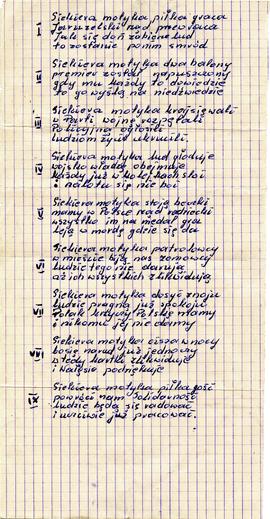 I Siekiera motyka piłka graca
Jaruzelskiego przewraca
to zostanie po nim smród
II Siekiera motyka dwa balony
premier został napuszczony
gdy mu każdy to dowiedzie
to go wyślą na niedźwiedzie
III Siekiera motyka
w Partii wojnę rozpętali
Policyjną ogłosili
ludziom żywot ukrócili
IV Siekiera motyka lud głoduje
wojsko władzę obejmuje
każdy już w kolejkach stoi
i nalotu się nie boi
V Siekiera motyka stoją
mamy w Polsce rząd radziecki
wszystko im na medal gra
leją w mordę gdzie się da
VI Siekiera motyka patrolowcy
w mieście biją nas zomowcy
ludzie tego nie darują
aż ich wszystkich zlikwidują
VII Siekiera motyka dosyć znoju
ludzie pragną już spokoju
Polak Polskę mamy
i nikomu jej nie damy
VIII Siekiera motyka cisza w nocy
będzie naród już jednowy
wtedy kartki zlikwiduje
i
IX Siekiera motyka piłka gość
powróci nam Solidarność
ludzie będą się radować
i uczciwie już pracować.